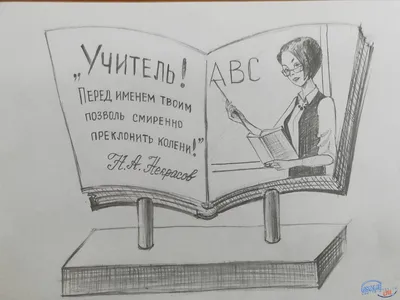 „Учитель!
Перед именем твоим
позволь смиренно
преклонить колени!"
Н.А. Некрасов
АВС